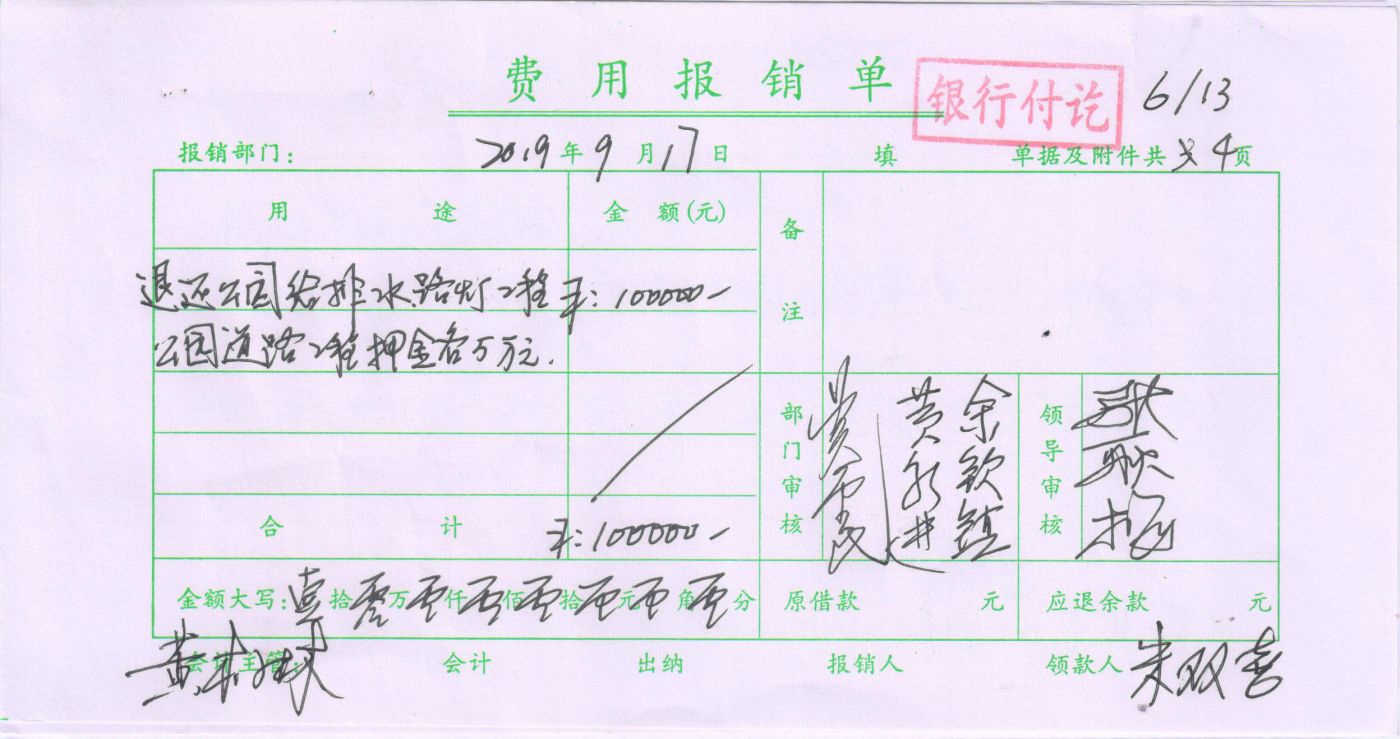 费用报销单
银行付讫
6/13
报销部门: 2019年9月17日 填 单据及附件共 4页
用途 金额(元) 备注
退还公园给排水路灯工程 ¥:100000-
公园道路工程押金各万元.
合计 ¥:100000-
部门审核 黄永井 余钦镇 领导审核
金额大写: 壹拾零万零仟零佰零拾零元零角零分 原借款 元 应退余款 元
会计主管: 会计 出纳 报销人 领款人 朱双喜